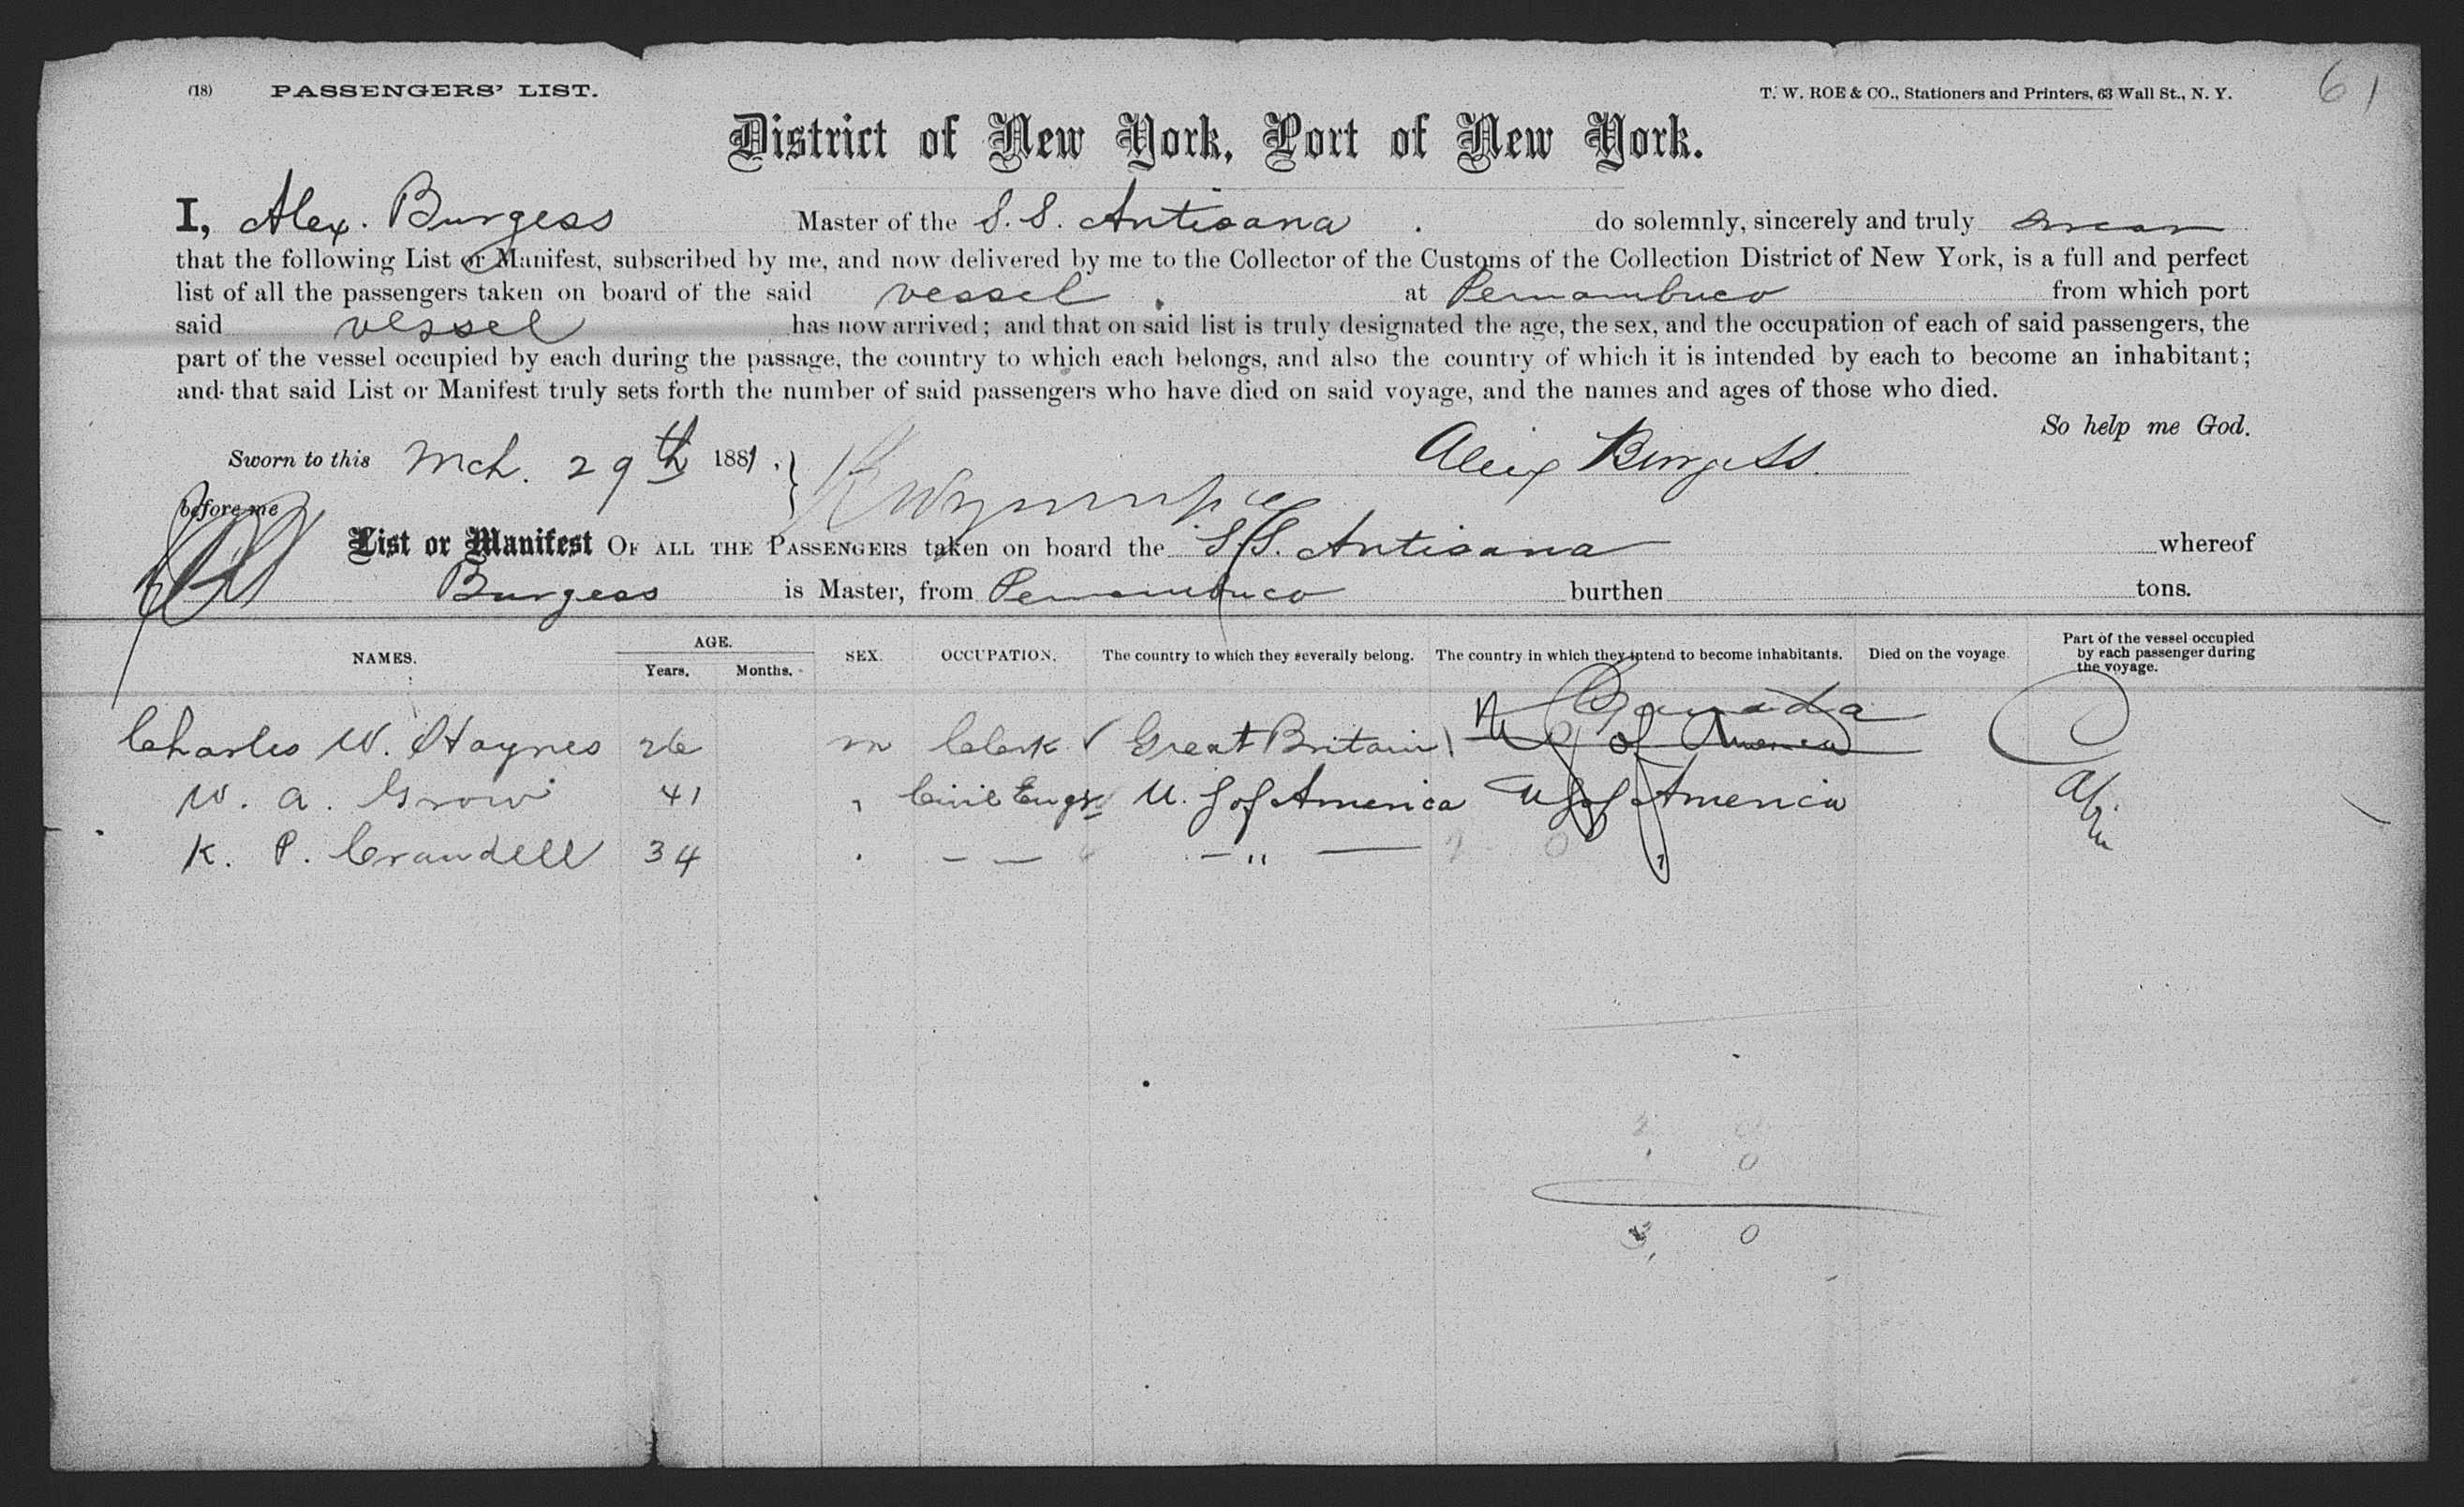 (18) PASSENGERS' LIST. T. W. ROE & CO., Stationers and Printers, 63 Wall St., N. Y. 61
District of New York, Port of New York.
I, Alex. Burgess Master of the S. S. Antisana. do solemnly, sincerely and truly swear
that the following List or Manifest, subscribed by me, and now delivered by me to the Collector of the Customs of the Collection District of New York, is a full and perfect
list of all the passengers taken on board of the said vessel. at Pernambuco from which port
said vessel has now arrived; and that on said list is truly designated the age, the sex, and the occupation of each of said passengers, the
part of the vessel occupied by each during the passage, the country to which each belongs, and also the country of which it is intended by each to become an inhabitant;
and that said List or Manifest truly sets forth the number of said passengers who have died on said voyage, and the names and ages of those who died.
So help me God.
Sworn to this Mch. 29th 1881, Alex Burgess.
before me
List or Manifest OF ALL THE PASSENGERS taken on board the S.S. Antisana whereof
Burgess is Master, from Pernambuco burthen tons.
NAMES. AGE. Years. Months. SEX. OCCUPATION. The country to which they severally belong. The country in which they intend to become inhabitants. Died on the voyage. Part of the vessel occupied by each passenger during the voyage.
Canada
Charles W. Haynes 26 m Clerk Great Britain U S of America
W. A. Grow 41 " Civil Engr U. S of America U S of America
K. P. Crandell 34 " — — — " —
0
3 0